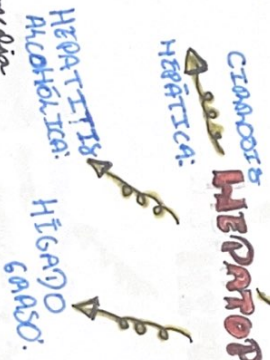 HEPATOP
CIRROSIS
HEPÁTICA:
HEPATITIS
ALCOHÓLICA:
HÍGADO
GRASO: